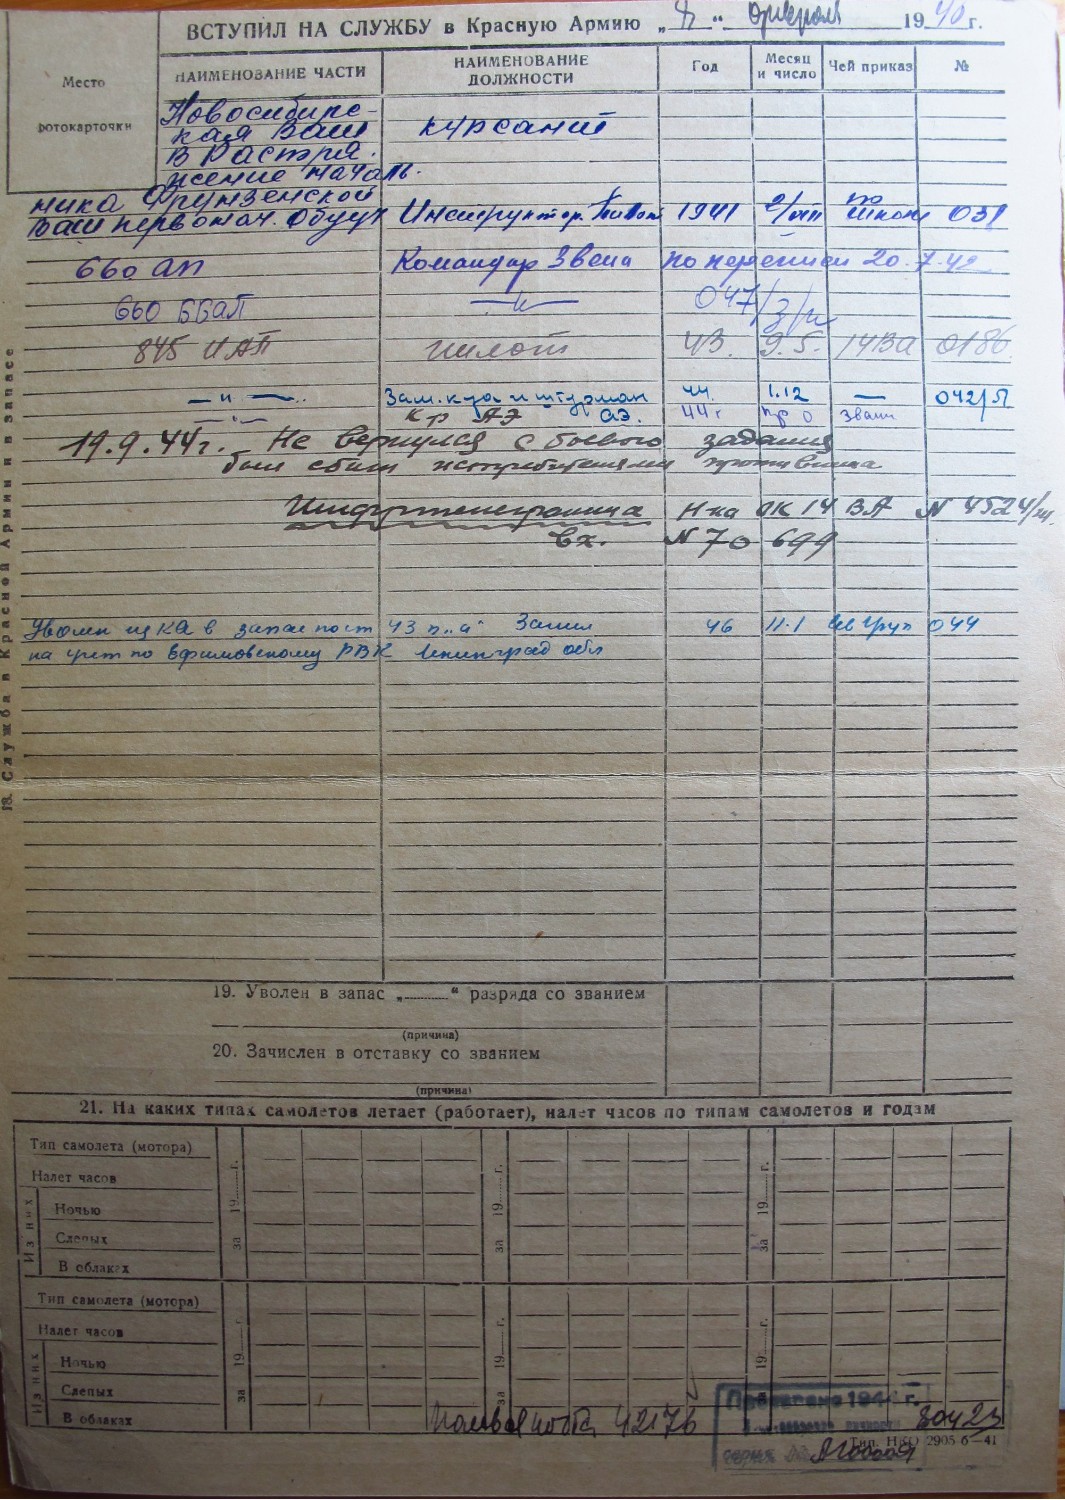 ВСТУПИЛ НА СЛУЖБУ в Красную Армию „ “ февраля 1940 г.
Место
фотокарточки
НАИМЕНОВАНИЕ ЧАСТИ
НАИМЕНОВАНИЕ ДОЛЖНОСТИ
Год
Месяц и число
Чей приказ
№
Новосибирс-
кая ВАШ курсант
В Распря
жение началь-
ника Фрунзенской
ВАШ первонач. обуч Инструктор. Пилот 1941 по школе 031
660 АП Командир Звена по переписи 20.7.42
660 ББАП — „ — 047/з/н
845 ИАП пилот 43. 9.5. 14ВА 0186
— „ — Зам. к-ра и штурман АЭ. 44. 1.12 — 042/Л
— „ — К-р АЭ 44 г
19.9.44 г. Не вернулся с боевого задания
был сбит истребителями противника
Шифртелеграмма Н-ка ОК 14 ВА N 4524/ш.
вх. N 70 699
Уволен из КА в запас по ст 43 п. „а“ 46 11.1 044
на учет по Ефимовскому РВК Ленинград обл
18. Служба в Красной Армии и в запасе
19. Уволен в запас „..........“ разряда со званием
(причина)
20. Зачислен в отставку со званием
(причина)
21. На каких типах самолетов летает (работает), налет часов по типам самолетов и годам
Тип самолета (мотора)
Налет часов
Из них
Ночью
Слепых
В облаках
за 19......г.
за 19......г.
за 19......г.
Тип самолета (мотора)
Налет часов
Из них
Ночью
Слепых
В облаках
за 19......г.
за 19......г.
за 19......г.
Полевая почта 42176
1944 г.
80423
Тип. НКО 2905-6—41